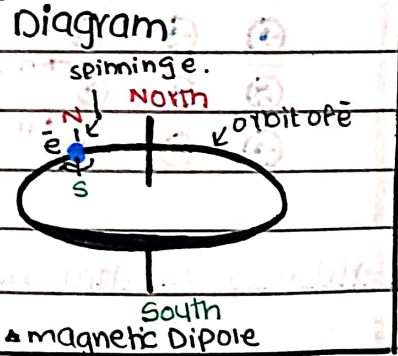 Diagram:
spinning e.
North
N
orbit of ē
ē
S
South
magnetic Dipole